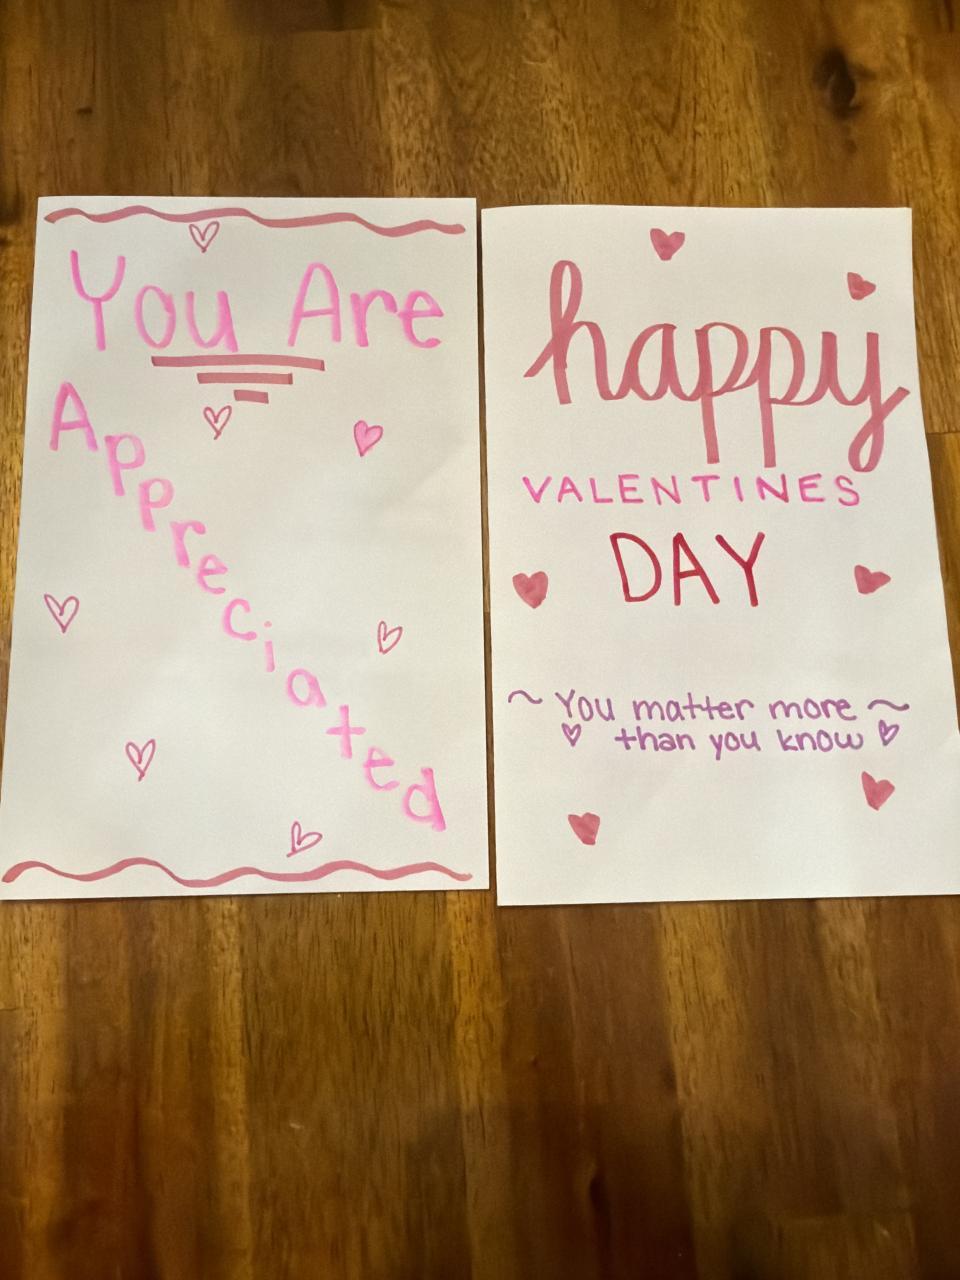 You Are
Appreciated
happy
VALENTINES
DAY
~ You matter more ~
than you know